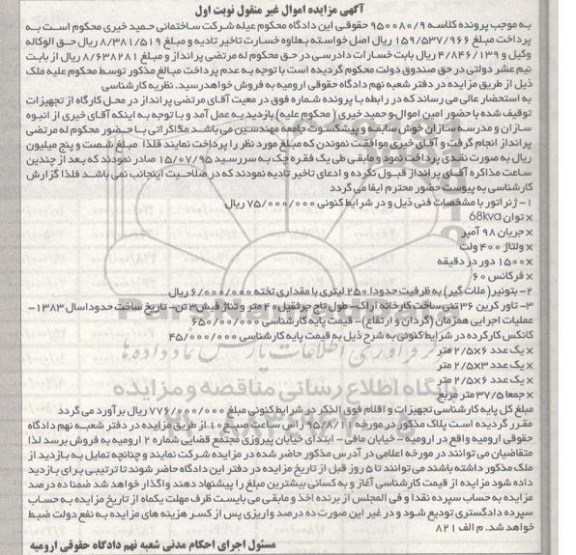 آگهی مزایده اموال غیر منقول نوبت اول
به موجب پرونده کلاسه ۹۵۰۰۸۰/۹ حقوقی این دادگاه محکوم علیه شرکت ساختمانی حمید خیری محکوم است به
پرداخت مبلغ ۱۵۹/۵۳۷/۹۶۶ ریال اصل خواسته بعلاوه خسارت تاخیر تادیه و مبلغ ۸/۳۸۱/۵۱۹ ریال حق الوکاله
وکیل و ۴/۸۴۶/۱۳۹ ریال بابت خسارات دادرسی در حق محکوم له مرتضی پرانداز و مبلغ ۸/۶۳۸۲۸۱ ریال از بابت
نیم عشر دولتی در حق صندوق دولت محکوم گردیده است با توجه به عدم پرداخت مبالغ مذکور توسط محکوم علیه ملک
ذیل از طریق مزایده در دفتر شعبه نهم دادگاه حقوقی ارومیه به فروش خواهد رسید. نظریه کارشناسی
به استحضار عالی می رساند که در رابطه با پرونده شماره فوق در معیت آقای مرتضی پرانداز در محل کارگاه از تجهیزات
توقیف شده با حضور امین اموال و حمید خیری (محکوم علیه) بازدید به عمل آمد و با توجه به اینکه آقای خیری از انبوه
سازان و مدرسه سازان خوش سابقه و پیشکسوت جامعه مهندسین می باشد مذاکراتی با حضور محکوم له مرتضی
پرانداز انجام گرفت و آقای خیری موافقت نمودند که مبلغ مورد نظر را پرداخت نمایند فلذا مبلغ شصت و پنج میلیون
ریال به صورت نقدی پرداخت نمود و مابقی طی یک فقره چک به سررسید ۱۵/۰۷/۹۵ صادر نمودند که بعد از چندین
ساعت مذاکره آقای پرانداز قبول نکرده و ادعای تاخیر تادیه نمودند که در صلاحیت اینجانب نمی باشد فلذا گزارش
کارشناسی به پیوست حضور محترم ایفا می گردد
۱- ژنراتور با مشخصات فنی ذیل و در شرایط کنونی ۷۵/۰۰۰/۰۰۰ ریال
x توان 68kva
x جریان ۹۸ آمپر
x ولتاژ ۴۰۰ ولت
x ۱۵۰۰ دور در دقیقه
x فرکانس ۶۰
۲- بتونیر (ملات گیر) به ظرفیت حدودا ۲۵۰ لیتری با مقداری تخته ۶/۰۰۰/۰۰۰ ریال
۳- تاور کرین ۳۶ تنی ساخت کارخانه اراک- طول تاج جرثقیل ۴۰ متر و تناژ فعلی ۳ تن- تاریخ ساخت حدودا سال ۱۳۸۳-
عملیات اجرایی همزمان (گردان و ارتفاع)- قیمت پایه کارشناسی ۶۵۰/۰۰۰/۰۰۰
کانکس کارکرده در شرایط کنونی به شرح ذیل به قیمت پایه کارشناسی ۴۵/۰۰۰/۰۰۰
x یک عدد ۲/۵x۶ متر
x یک عدد ۲/۵x۳ متر
x یک عدد ۲/۵x۶ متر
x جمعا ۳۷/۵ متر مربع
مبلغ کل پایه کارشناسی تجهیزات و اقلام فوق الذکر در شرایط کنونی مبلغ ۷۷۶/۰۰۰/۰۰۰ ریال برآورد می گردد
مقرر گردیده است پلاک مذکور در مورخه ۹۵/۸/۱۱ راس ساعت صبح ۱۰ از طریق مزایده در دفتر شعبه نهم دادگاه
حقوقی ارومیه واقع در ارومیه- خیابان مافی - ابتدای خیابان پیروزی مجتمع قضایی شماره ۲ ارومیه به فروش برسد لذا
متقاضیان می توانند در مورخه اعلامی در آدرس مذکور حاضر شده در مزایده شرکت نمایند و چنانچه تمایل به بازدید از
ملک مذکور داشته باشند می توانند تا ۵ روز قبل از تاریخ مزایده در دفتر این دادگاه حاضر شوند تا ترتیبی برای بازدید
داده شود مزایده از قیمت کارشناسی آغاز و به کسانی بیشترین مبلغ را پیشنهاد دهند واگذار خواهد شد ضمنا ده درصد
مزایده به حساب سپرده نقدا و فی المجلس از برنده اخذ و مابقی می بایست ظرف مهلت یکماه از تاریخ مزایده به حساب
سپرده دادگستری تودیع شود و در غیر این صورت ده درصد واریزی پس از کسر هزینه های مزایده به نفع دولت ضبط
خواهد شد. م الف ۸۲۱
مسئول اجرای احکام مدنی شعبه نهم دادگاه حقوقی ارومیه